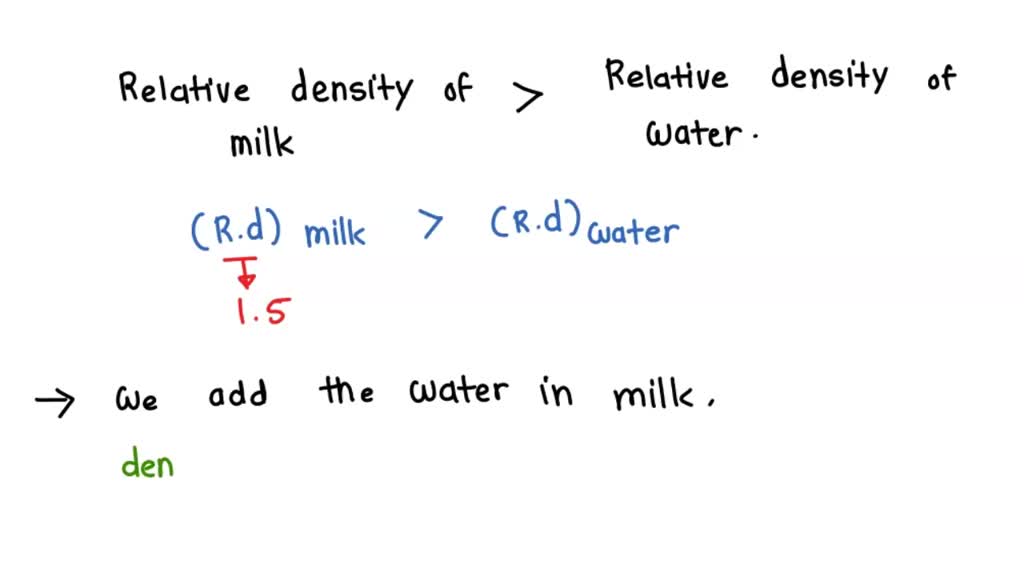 Relative density of > Relative density of
milk water.
(R.d) milk > (R.d) water
1.5
→ we add the water in milk.
den